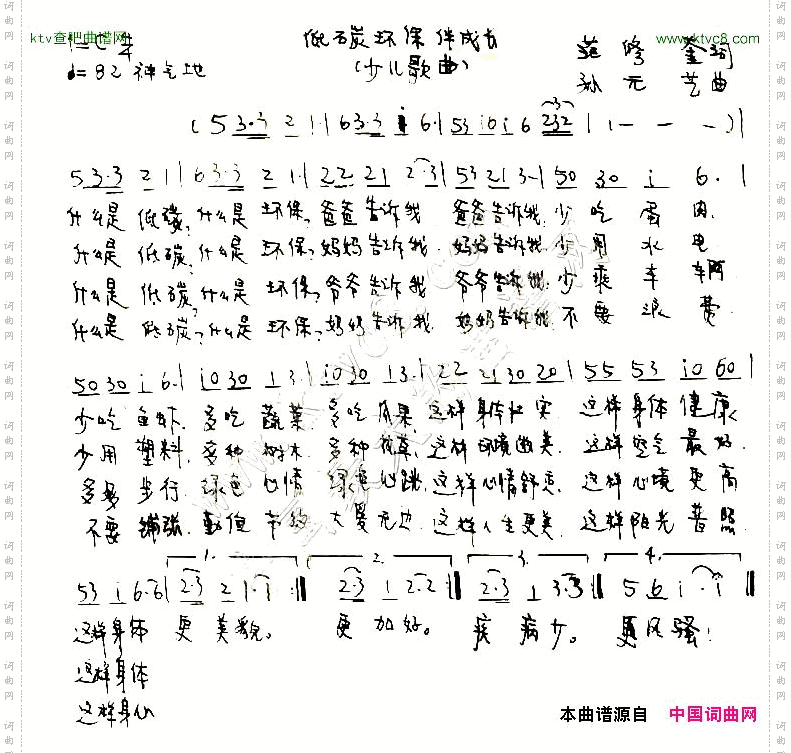 ktv查吧曲谱网
www.ktvc8.com
低碳环保伴成长
(少儿歌曲)
♩=82 神气地
范修奎词
孙元艺曲
(5 3·3 2 1·|6 3·3 i 6·|53 i0 i 6 232|1 — — —)|
5 3·3 2 1|6 3·3 2 1·|22 21 2·3|53 21 3·|50 30 i 6·|
什么是 低碳,什么是 环保,爸爸告诉我 爸爸告诉我,少吃蛋肉,
什么是 低碳,什么是 环保,妈妈告诉我,妈妈告诉我,少用水电
什么是 低碳,什么是 环保,爷爷告诉我 爷爷告诉我,少乘车辆
什么是 低碳,什么是 环保,奶奶告诉我,奶奶告诉我,不要浪费
50 30 i 6·|i0 30 1 3·|i0 30 1 3·|22 21 30 20|55 53 i0 60|
少吃鱼虾,多吃蔬菜 多吃瓜果,这样身体壮实 这样身体健康
少用塑料,多种树木,多种花草,这样环境幽美,这样空气最好
多多步行,绿色心情 绿色心跳,这样心情舒爽,这样心境更高
不要铺张,勤俭节约 大爱无边,这样人生更美,这样阳光普照
1. 2. 3. 4.
53 i 6·6|2·3 2 1·1:‖2·3 1 2·2:‖2·3 1 3·3:‖5 6 i· i‖
这样身体 更美貌。 更加好。 疾病少。 更风骚!
这样身体
这样身心
本曲谱源自 中国词曲网
词曲网